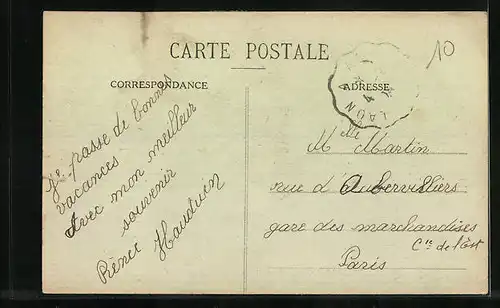 CARTE POSTALE
10
CORRESPONDANCE
ADRESSE
LAON
4
Je passe de bonnes
vacances
Avec mon meilleur
souvenir
Renée Hauduin
Melle Martin
rue d'Aubervilliers
gare des marchandises
Cie de l'Est
Paris